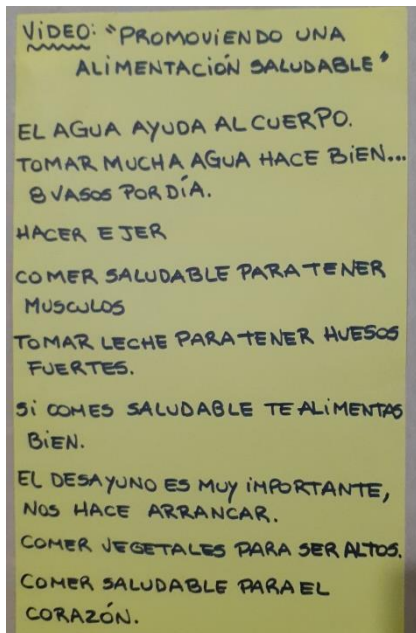 VIDEO: "PROMOVIENDO UNA
ALIMENTACIÓN SALUDABLE"
EL AGUA AYUDA AL CUERPO.
TOMAR MUCHA AGUA HACE BIEN...
8 VASOS POR DÍA.
HACER EJER
COMER SALUDABLE PARA TENER
MUSCULOS
TOMAR LECHE PARA TENER HUESOS
FUERTES.
SI COMES SALUDABLE TE ALIMENTAS
BIEN.
EL DESAYUNO ES MUY IMPORTANTE,
NOS HACE ARRANCAR.
COMER VEGETALES PARA SER ALTOS.
COMER SALUDABLE PARA EL
CORAZÓN.